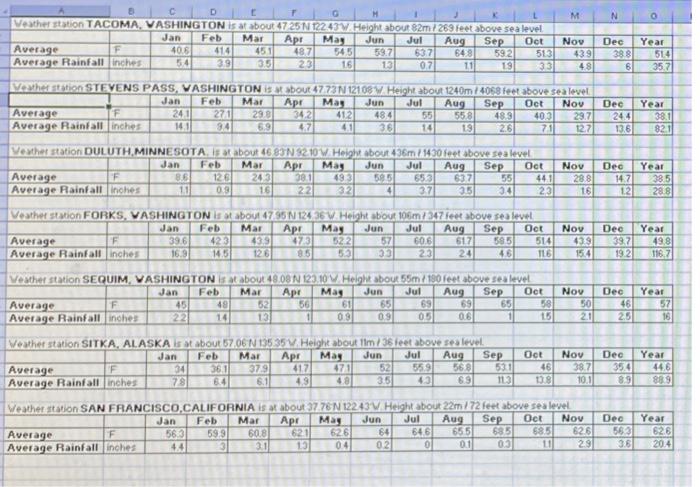 A B C D E F G H I J K L M N O
Weather station TACOMA, WASHINGTON is at about 47.25 N 122.43 W. Height about 82m / 269 feet above sea level.
Jan Feb Mar Apr May Jun Jul Aug Sep Oct Nov Dec Year
Average F 40.6 41.4 45.1 48.7 54.5 59.7 63.7 64.8 59.2 51.3 43.9 38.8 51.4
Average Rainfall inches 5.4 3.9 3.5 2.3 1.6 1.3 0.7 1.1 1.9 3.3 4.8 6 35.7
Weather station STEVENS PASS, WASHINGTON is at about 47.73 N 121.08 W. Height about 1240m / 4068 feet above sea level.
Jan Feb Mar Apr May Jun Jul Aug Sep Oct Nov Dec Year
Average F 24.1 27.1 29.8 34.2 41.2 48.4 55 55.8 48.9 40.3 29.7 24.4 38.1
Average Rainfall inches 14.1 9.4 6.9 4.7 4.1 3.6 1.4 1.9 2.6 7.1 12.7 13.6 82.1
Weather station DULUTH,MINNESOTA. is at about 46.83 N 92.10 W. Height about 436m / 1430 feet above sea level.
Jan Feb Mar Apr May Jun Jul Aug Sep Oct Nov Dec Year
Average F 8.6 12.6 24.3 38.1 49.3 58.5 65.3 63.7 55 44.1 28.8 14.7 38.5
Average Rainfall inches 1.1 0.9 1.6 2.2 3.2 4 3.7 3.5 3.4 2.3 1.6 1.2 28.8
Weather station FORKS, WASHINGTON is at about 47.95 N 124.36 W. Height about 106m / 347 feet above sea level.
Jan Feb Mar Apr May Jun Jul Aug Sep Oct Nov Dec Year
Average F 39.6 42.3 43.9 47.3 52.2 57 60.6 61.7 58.5 51.4 43.9 39.7 49.8
Average Rainfall inches 16.9 14.5 12.6 8.5 5.3 3.3 2.3 2.4 4.6 11.6 15.4 19.2 116.7
Weather station SEQUIM, WASHINGTON is at about 48.08 N 123.10 W. Height about 55m / 180 feet above sea level.
Jan Feb Mar Apr May Jun Jul Aug Sep Oct Nov Dec Year
Average F 45 48 52 56 61 65 69 69 65 58 50 46 57
Average Rainfall inches 2.2 1.4 1.3 1 0.9 0.9 0.5 0.6 1 1.5 2.1 2.5 16
Weather station SITKA, ALASKA is at about 57.06 N 135.35 W. Height about 11m / 36 feet above sea level.
Jan Feb Mar Apr May Jun Jul Aug Sep Oct Nov Dec Year
Average F 34 36.1 37.9 41.7 47.1 52 55.9 56.8 53.1 46 38.7 35.4 44.6
Average Rainfall inches 7.8 6.4 6.1 4.9 4.8 3.5 4.3 6.9 11.3 13.8 10.1 8.9 88.9
Weather station SAN FRANCISCO,CALIFORNIA is at about 37.76 N 122.43 W. Height about 22m / 72 feet above sea level.
Jan Feb Mar Apr May Jun Jul Aug Sep Oct Nov Dec Year
Average F 56.3 59.9 60.8 62.1 62.6 64 64.6 65.5 68.5 68.5 62.6 56.3 62.6
Average Rainfall inches 4.4 3 3.1 1.3 0.4 0.2 0 0.1 0.3 1.1 2.9 3.6 20.4